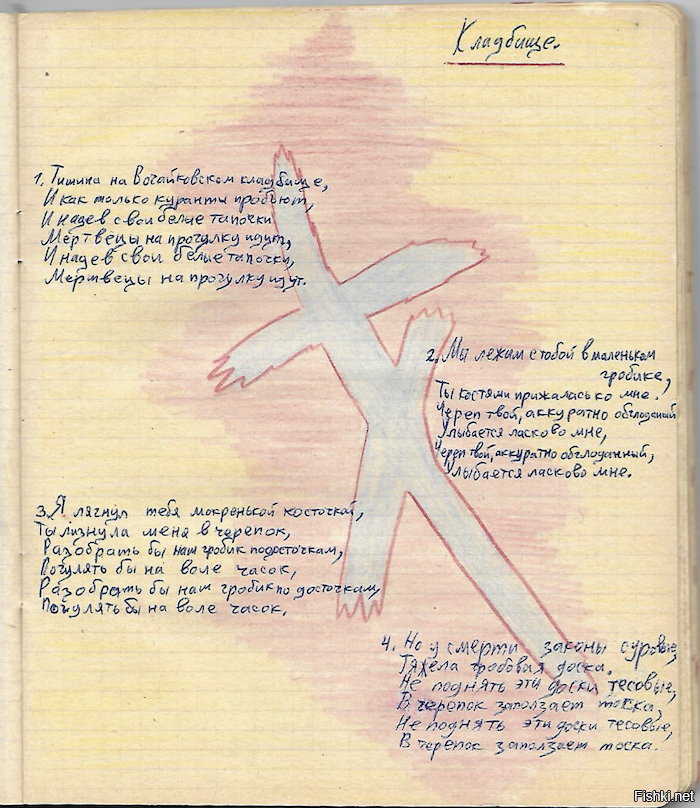 Кладбище.
1. Тишина на Вочайковском кладбище,
И как только куранты пробьют,
И надев свои белые тапочки
Мертвецы на прогулку идут,
И надев свои белые тапочки,
Мертвецы на прогулку идут.
2. Мы лежим с тобой в маленьком
гробике,
Ты костями прижалась ко мне.
Череп твой, аккуратно обглоданый
Улыбается ласково мне,
Череп твой, аккуратно обглоданный,
Улыбается ласково мне.
3. Я лягнул тебя мокренькой косточкай,
Ты лизнула меня в черепок,
Разобрать бы наш гробик подосточкам,
Погулять бы на воле часок,
Разобрать бы наш гробик по досточкам,
Погулять бы на воле часок.
4. Но у смерти законы суровые,
Тяжела гробовая доска.
Не поднять эти доски тесовые,
В черепок заползает тоска,
Не поднять эти доски тесовые,
В черепок заползает тоска.
Fishki.net